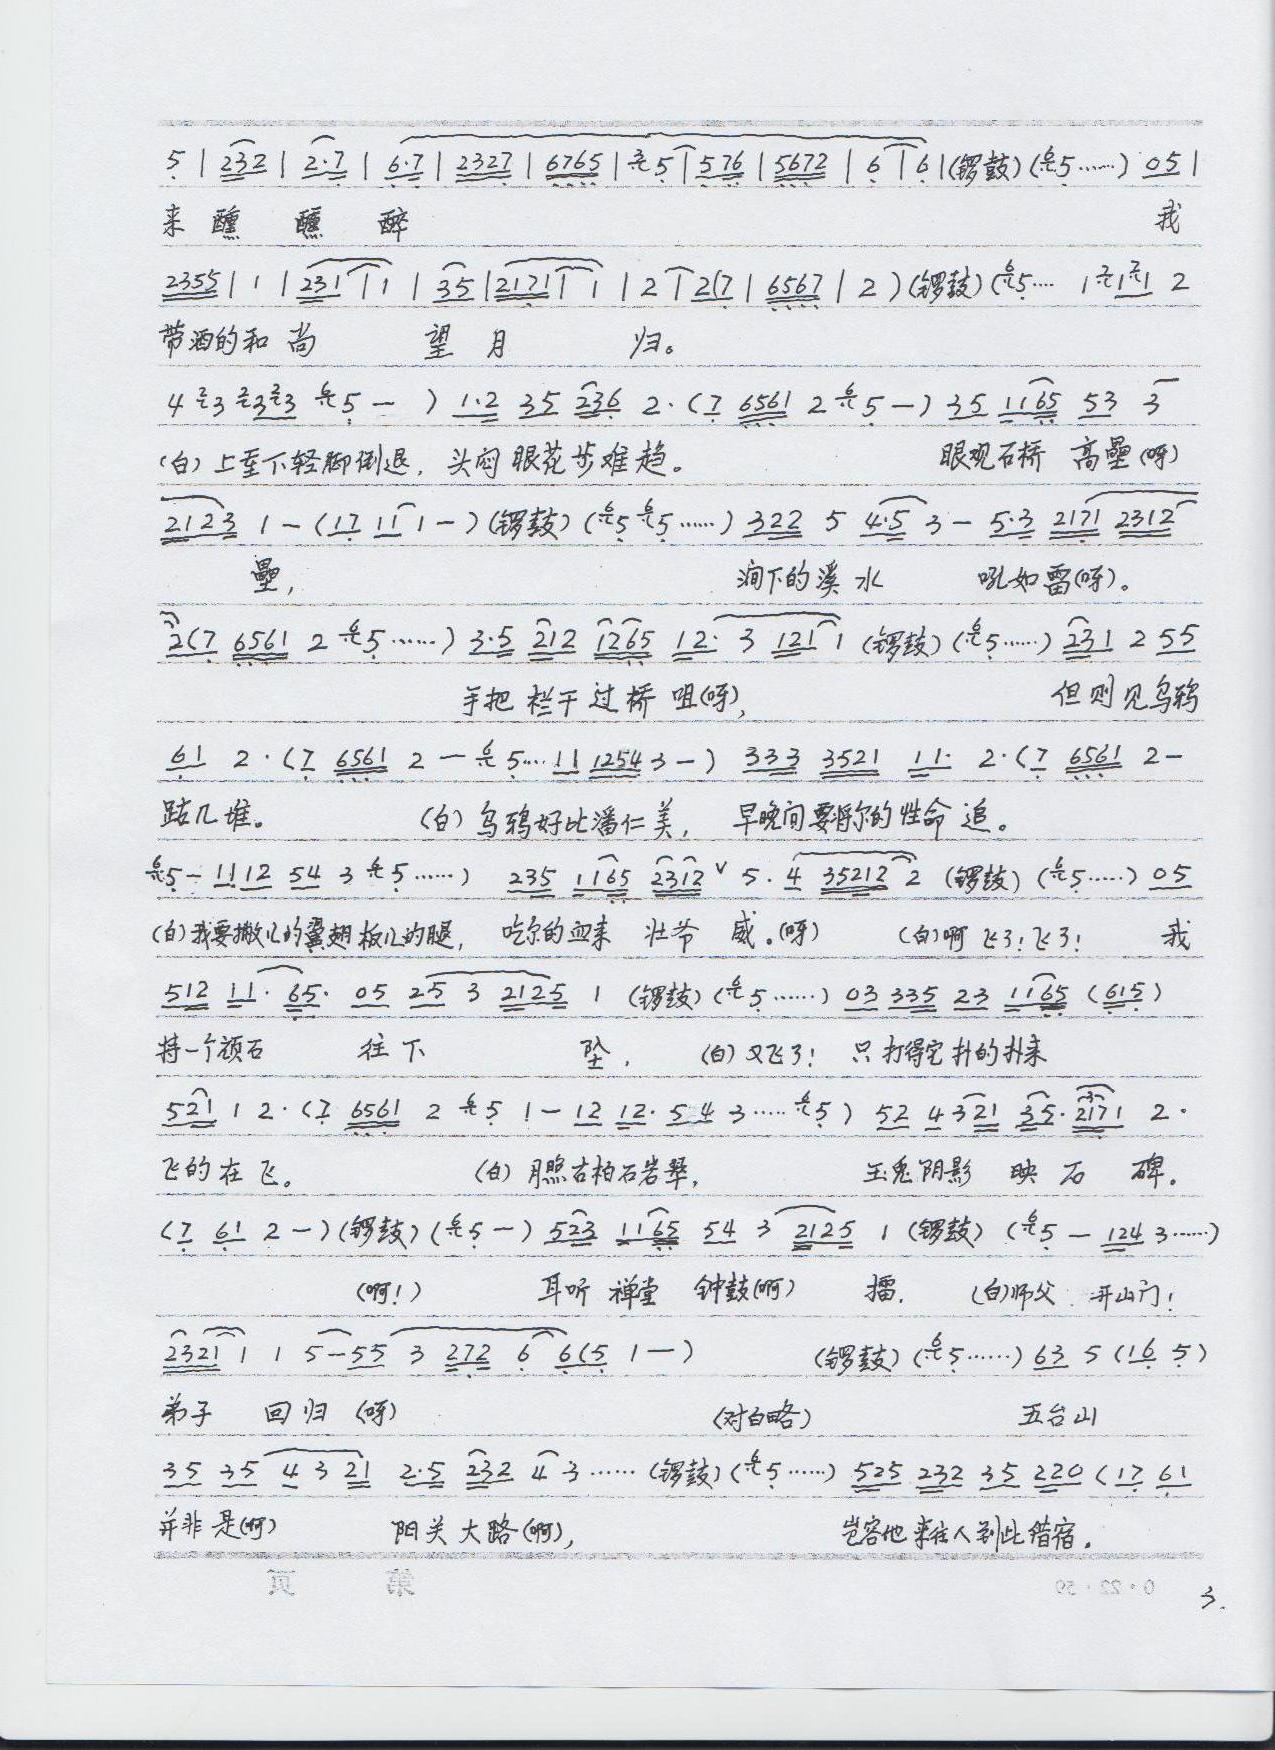 5 | 232 | 2·7 | 6·7 | 2327 | 6765 | 5 | 576 | 5672 | 6 | 6 | (锣鼓) (5……) 05 |
来 醺 醺 醉 我
2355 | 1 | 231 | 1 | 35 | 2171 | 1 | 2 | 2(7 | 6567 | 2 ) (锣鼓) (5…… 1 1 1 2
带酒的和尚 望月 归。
4 3 3 3 5 — ) 1·2 35 236 2·(7 6561 2 5 —) 35 1165 53 3
(白)上至下轻脚倒退, 头闷眼花步难趋。 眼观石桥 高垒(呀)
2123 1 — (17 11 1 —) (锣鼓) (5 5……) 322 5 4·5 3 — 5·3 2171 2312
垒, 涧下的溪水 吼如雷(呀)。
2(7 6561 2 5……) 3·5 212 1265 12· 3 121 1 (锣鼓) (5……) 231 2 55
手把栏干过桥咀(呀), 但则见乌鸦
61 2·(7 6561 2 — 5… 11 1254 3 —) 333 3521 11· 2·(7 6561 2 —
跕几堆。 (白)乌鸦好比潘仁美, 早晚间要将尔的性命追。
5 — 1112 54 3 5……) 235 1165 2312 ∨ 5·4 35212 2 (锣鼓) (5……) 05
(白)我要撒儿的翼翅板儿的腿, 吃尔的血来 壮爷 威。(呀) (白)啊飞了!飞了! 我
512 11· 65· 05 25 3 2125 1 (锣鼓) (5……) 03 335 23 1165 (615)
持一个顽石 往下 坠, (白)又飞了! 只打得它扑的扑来
521 1 2·(7 6561 2 5 1 — 12 12· 54 3…… 5) 52 4 321 35· 2171 2·
飞的在飞。 (白)月照古柏石岩翠, 玉兔阴影 映石 碑。
(7 61 2 —) (锣鼓) (5 —) 523 1165 54 3 2125 1 (锣鼓) (5 — 124 3……)
(啊!) 耳听禅堂 钟鼓(啊) 擂, (白)师父 开山门!
2321 1 1 5 — 55 3 272 6 6(5 1 —) (锣鼓) (5……) 63 5 (16 5)
弟子 回归(呀) (对白略) 五台山
35 35 4 3 21 2·5 232 4 3…… (锣鼓) (5……) 525 232 35 220 (17 61
并非是(啊) 阳关大路(啊), 岂容他来往人到此借宿。
第 页
0·22·59
3.